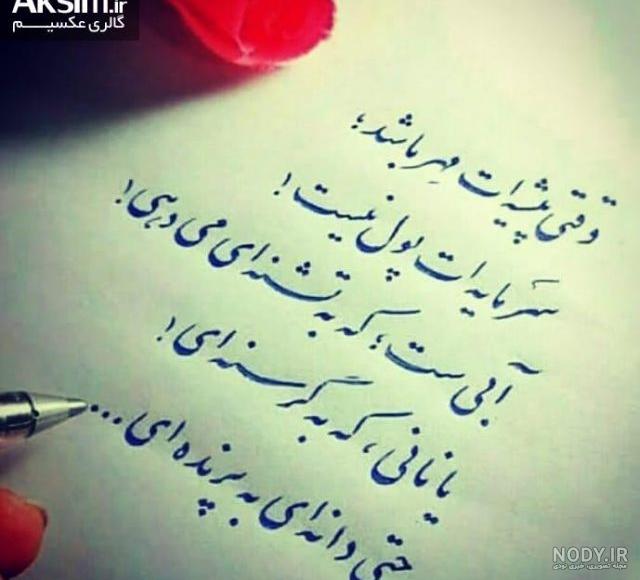 AKsim.ir
گالری عکسیم
وقتی پیشه ات مِهر باشد؛
سرمایه ات پول نیست!
آبی ست؛ که به تشنه ای می دهی!
یا نانی، که به گرسنه ای!
حتی دانه ای به پرنده ای...
NODY.IR
مجله تصویری، خبری نودی